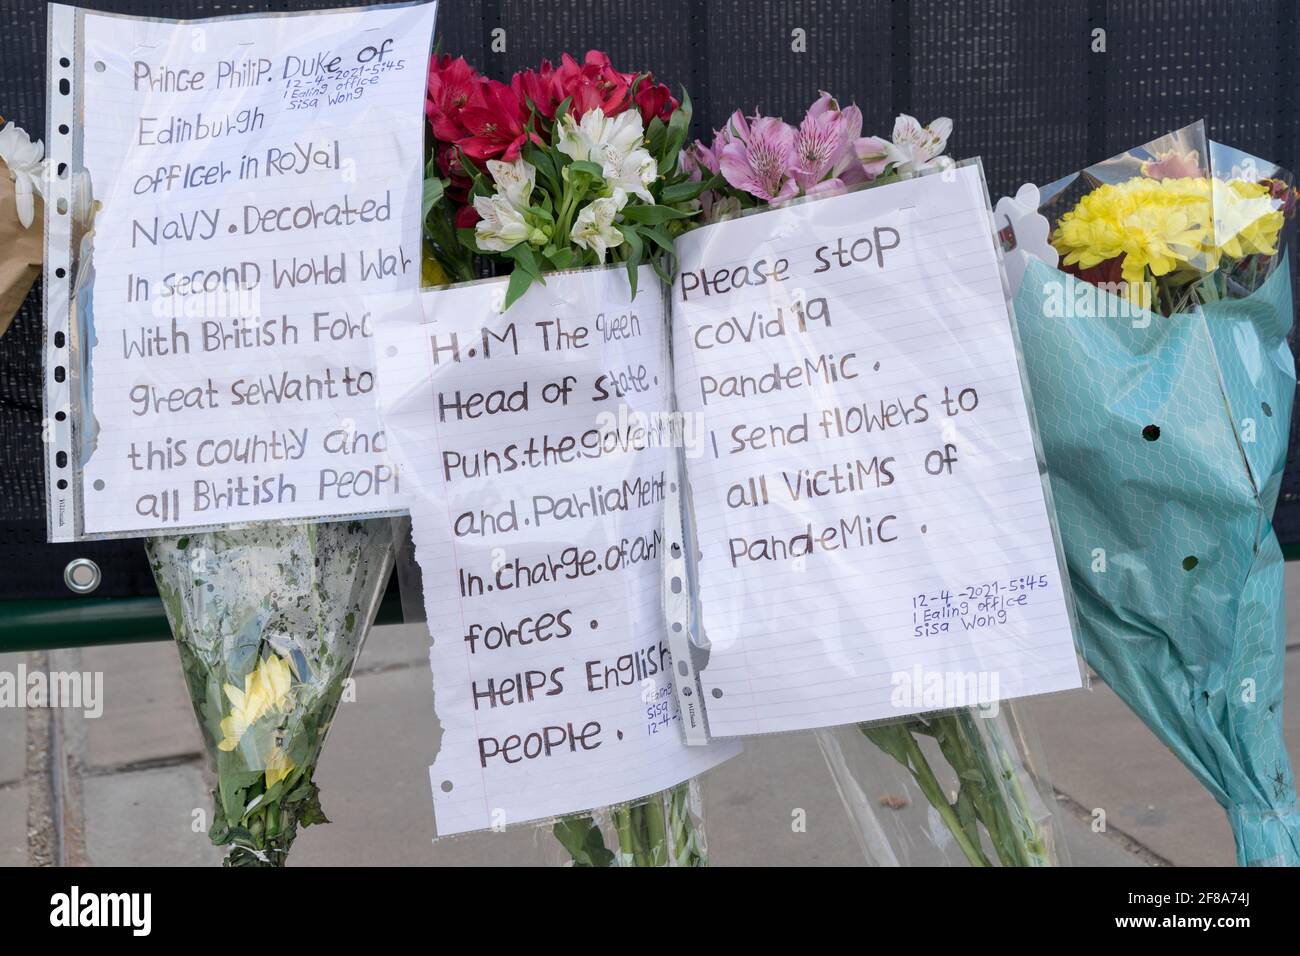 Prince Philip. Duke of
12-4-2021-5:45
1 Ealing office
Sisa Wong
Edinburgh
officer in Royal
Navy. Decorated
In second World War
With British Forc
great servant to
this country and
all British Peopl
H.M The Queen
Head of state.
Puns.the.govern
and.Parliament
In.charge.of.arm
forces.
Helps English
People.
Sisa
12-4-
Please stop
covid19
pandemic.
I send flowers to
all victims of
pandemic.
12-4-2021-5:45
1 Ealing office
Sisa Wong
alamy
Image ID: 2F8A74J
www.alamy.com